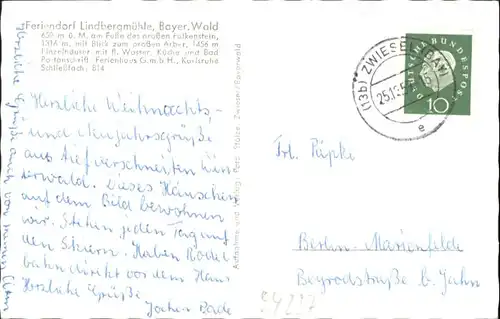 Feriendorf Lindbergmühle, Bayer. Wald
650 m ü. M. am Fuße des großen Falkenstein,
1314 m, mit Blick zum großen Arber, 1456 m
Einzelhäuser mit fl. Wasser, Küche und Bad
Ferienhaus G.m.b.H., Karlsruhe
Schließfach 814
Herzliche Weihnachts-
und Neujahrsgrüße
aus tief verschneiten
terwald. Dieses Häuschen
auf dem Bild bewohnen
wir. Stehen jeden Tag auf
den Skiern. Haben Rodel
bahn direkt vor dem Haus
Herzliche Grüße
Jochen
Herzliche Grüße auch von
Aufnahme und Verlag: Foto Stolze, Zwiesel/Bayerwald
(13b) ZWIESEL (BAY)
e
DEUTSCHE BUNDESPOST
10
Frl. Rüpke
Berlin-Marienfelde
Beyrodtstraße b. Jahn